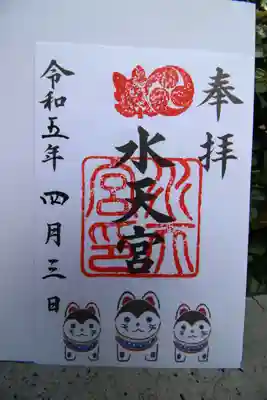 奉拝
水天宮
水天宮印
令和五年 四月三日